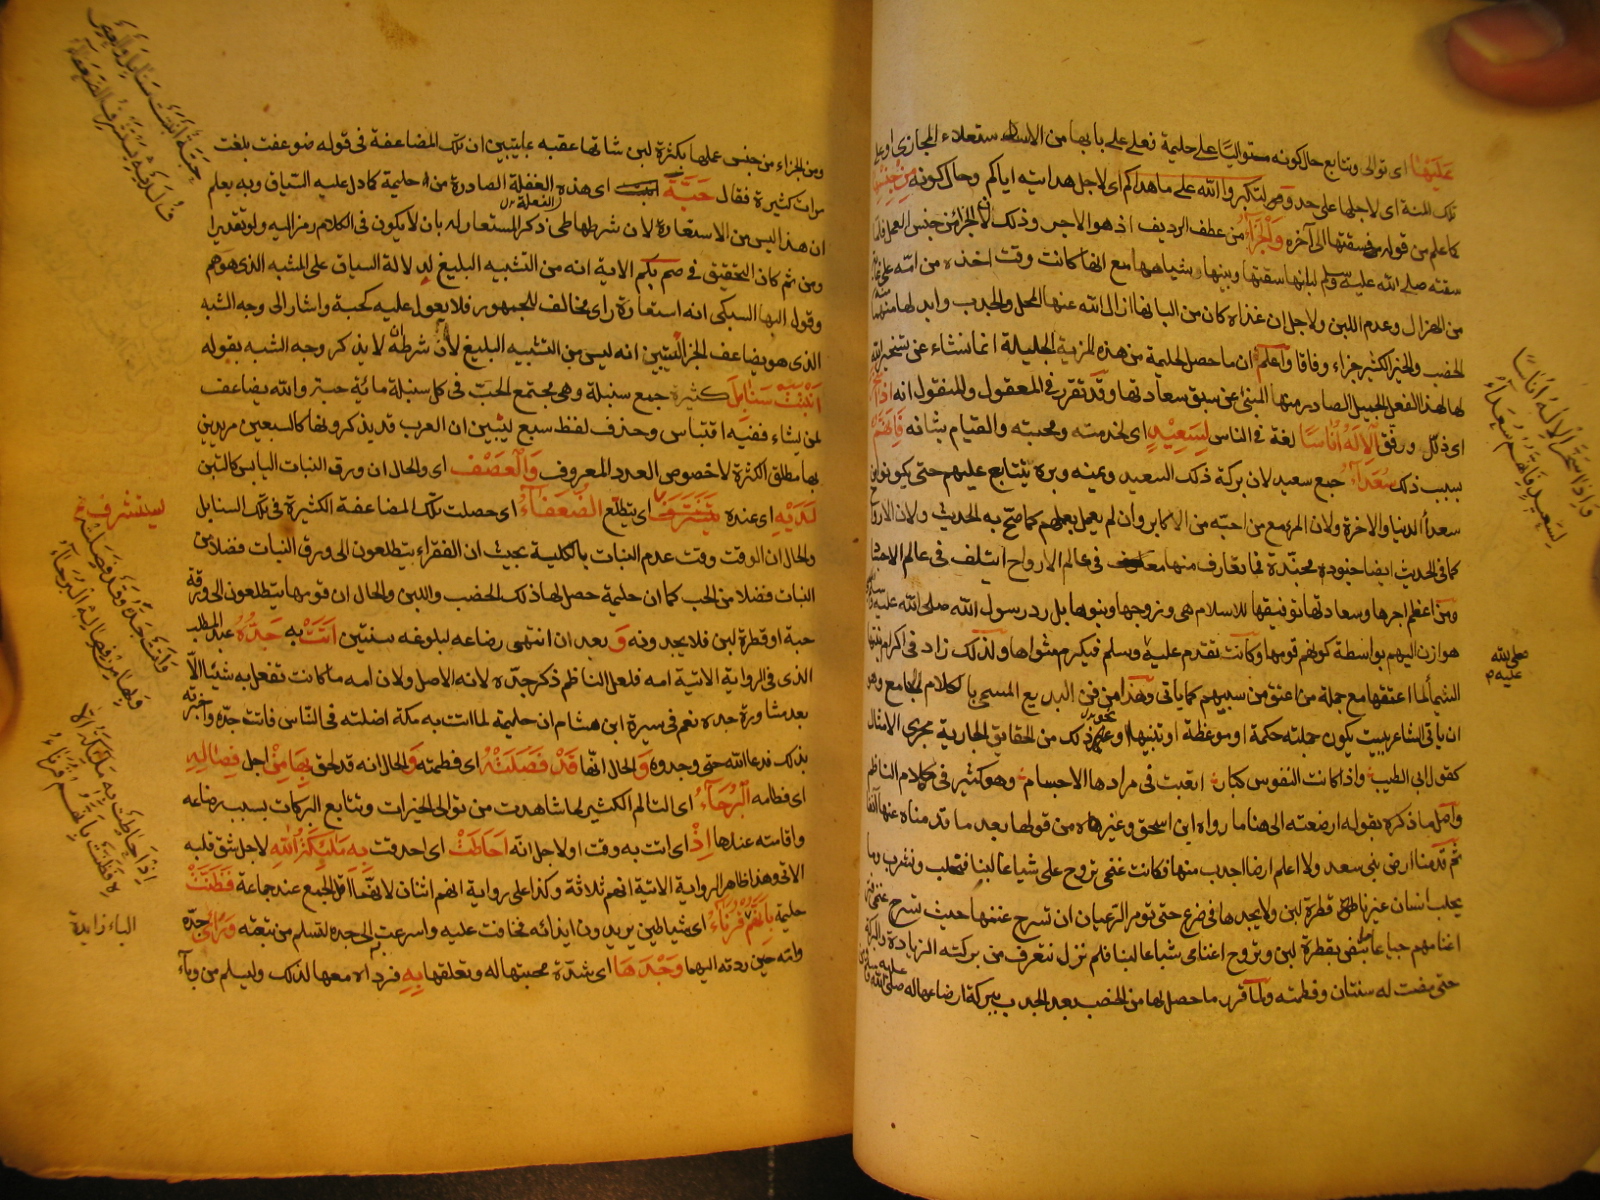 عليها اي توالى وتتابع حال كونه مستوليا على حليمة فعلى على بابها من الاستعلاء المجازي او على
تلك السنة اي لاجلها على حد وقوله لتكبروا الله على ما هداكم اي لاجل هدايته اياكم وحال كونه من جنسها
كما علم من قوله فسقتها الى آخره والجزاء من عطف الرديف اذ هو الاجر وذلك لان الجزاء من جنس العمل فلما
سقته صلى الله عليه وسلم لبانها سقتها وبنيها وشياهها مع انها كانت وقت اخذه من امه على غاية
من الهزال وعدم اللبن ولاجل ان غذاه كان من البانها ازال الله عنها المحل والجدب وابدلها منهما
الخصب والخير الكثير جزاء وفاقا واعلم ان ما حصل لحليمة من هذه المزية الجليلة انما نشاء عن تسخير الله
لها لهذا الفعل الجميل الصادر منها المنبئ عن سبق سعادتها وقد تقرر في المعقول والمنقول انه اذا سخر
اي ذلل ووفق الاله اناسا لغة في الناس لسعيد اي لخدمته ومحبته والقيام بشانه فانهم
بسبب ذلك سعداء جمع سعيد لان بركة ذلك السعيد وعينه وبره يتتابع عليهم حتى يكونوا من
سعداء الدنيا والاخرة ولان المرء مع من احبه من الاكابر وان لم يعمل بعملهم كما صح به الحديث ولان الارواح
كما في الحديث ايضا جنود مجندة فما تعارف منها في عالم الارواح ائتلف في عالم الاجساد
ومن اعظم اجرها وسعادتها توفيقها للاسلام هي وزوجها وبنوها بل رد رسول الله صلى الله عليه وسلم
هوازن اليهم بواسطة كونهم قومها وكانت تقدم عليه وسلم فيكرم مثواها ولذلك زاد في اكرام بنتها
الشيما لما اعتقها مع جملة من اعتق من سبيهم كما ياتي وهذا من فن البديع المسمى بالكلام الجامع وهو
ان ياتي الشاعر ببيت يكون جملته حكمة او موعظة او تنبيها او نحو ذلك من الحقائق الجارية مجرى الامثال
كقول ابي الطيب واذا كانت النفوس كبارا تعبت في مرادها الاجسام وهو كثير في كلام الناظم
واصل ما ذكره بقوله ارضعته الى هنا ما رواه ابن اسحق وغيره من قولها بعد ما قدمناه عنها آنفا
ثم قدمنا ارض بني سعد ولا اعلم ارضا اجدب منها فكانت غنمي تروح علي شباعا لبنا فنحلب ونشرب وما
يحلب انسان غيرنا قطرة لبن ولا يجدها في ضرع حتى تومر الرعيان ان تسرح غنمها حيث تسرح غنمي فتروح
اغنامهم جياعا ما تبض بقطرة لبن وتروح اغنامي شباعا لبنا فلم نزل نتعرف من بركته الزيادة والبركة
حتى مضت له سنتان وفطمته ولما قرر ما حصل لها من الخصب بعد الجدب ببركة ارضاعها له صلى الله عليه وسلم
واذا سخر الاله اناسا
لسعيد فانهم سعداء
صلى الله
عليه م
ومن الجزاء من جنس عملها بكثرة لبن شاتها عقبه بما يبين ان تلك المضاعفة في قوله ضوعفت بلغت
مرات كثيرة فقال حبة اي هذه الفعلة الصادرة من حليمة كما دل عليه السياق وبه يعلم
ان هذا ليس من الاستعارة لان شرطها طي ذكر المستعار له بان لا يكون في الكلام رمز اليه ولو تقديرا
ومن ثم كان التحقيق في صم بكم الاية انه من التشبيه البليغ لدلالة السياق على المشبه الذي هو هم
وقول البها السبكي انه استعارة راى مخالف للجمهور فلا يعول عليه كحبة واشار الى وجه الشبه
الذي هو يضاعف الجزائين انه ليس من التشبيه البليغ لان شرطه ان لا يذكر وجه الشبه بقوله
انبتت سنابل كثيرة جمع سنبلة وهي مجتمع الحب في كل سنبلة مائة حبة والله يضاعف
لمن يشاء ففيه اقتباس وحذف لفظ سبع ليبين ان العرب قد يذكرونها كالسبعين مريدين
بها مطلق الكثرة لا خصوص العدد المعروف والعصف اي والحال ان ورق النبات اليابس كالتبن
لديه اي عنده يستشرف اي يتطلع الضعفاء اي حصلت تلك المضاعفة الكثيرة في تلك السنابل
والحال ان الوقت وقت عدم النبات بالكلية بحيث ان الفقراء يتطلعون الى ورق النبات فضلا عن
النبات فضلا من الحب كما ان حليمة حصل لها ذلك الخصب واللبن والحال ان قومها يتطلعون الى ورقة
حبة او قطرة لبن فلا يجدونه و بعد ان انتهى رضاعه لبلوغه سنتين اتت به جده عبد المطلب
الذي في الرواية الاتية امه فلعل الناظم ذكر جده لانه الاصل ولان امه ما كانت تفعل به شيئا الا
بعد مشاورة جده نعم في سيرة ابن هشام ان حليمة لما اتت به مكة اضلته في الناس فاتت جده واخبرته
بذلك فدعا الله حتى وجدوه والحال انها قد فصلته اي فطمته والحال انه قد لحق بها من اجل فصاله
اي فطامه البرحاء اي التالم الكثير لما شاهدت من توالي الخيرات وتتابع البركات بسبب رضاعه
واقامته عندها اذ اي اتت به وقت او لاجل انه احاطت اي احدقت به ملائكة الله لاجل شق قلبه
الاتي وهذا ظاهر الرواية الاتية انهم ثلاثة وكذا على رواية انهم اثنان لانهما اقل الجمع عند جماعة فظنت
حليمة بانهم قرناء اي شياطين يريدون ايذائه فخافت عليه واسرعت به الى جده لتسلم من تبعته وراى جده
وامه حين ردته اليهما وجدها اي شدة محبتها له وتعلقها به فرداه معها لذلك وليسلم من وباء
حبة انبتت سنابل والعصف
لديه يستشرف الضعفاء
يستشرف
واتت جده وقد فصلته
وبها من فصاله البرحاء
اذ احاطت به ملائكة الله
فظنت بانهم قرناء
الباء زايدة